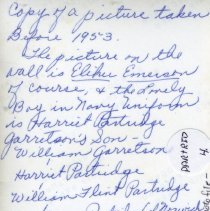 Copy of a picture taken
Before 1953.
The picture on the
wall is Elihu Emerson
of course, & the lovely
Boy in Navy Uniform
is Harriet Partridge
Garretson's Son -
William Garretson
Harriet Partridge
William Flint Partridge